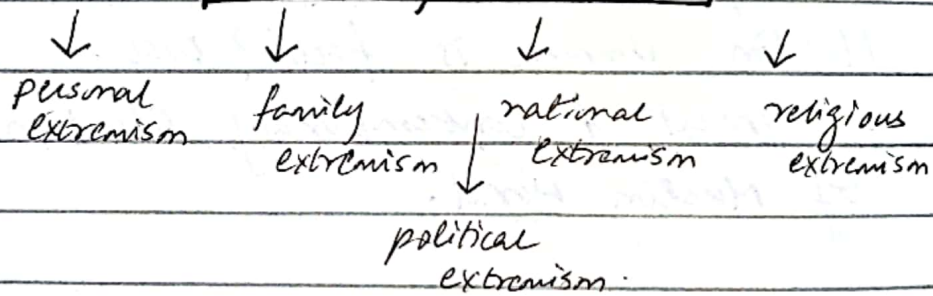 personal
extremism
family
extremism
national
extremism
religious
extremism
political
extremism.